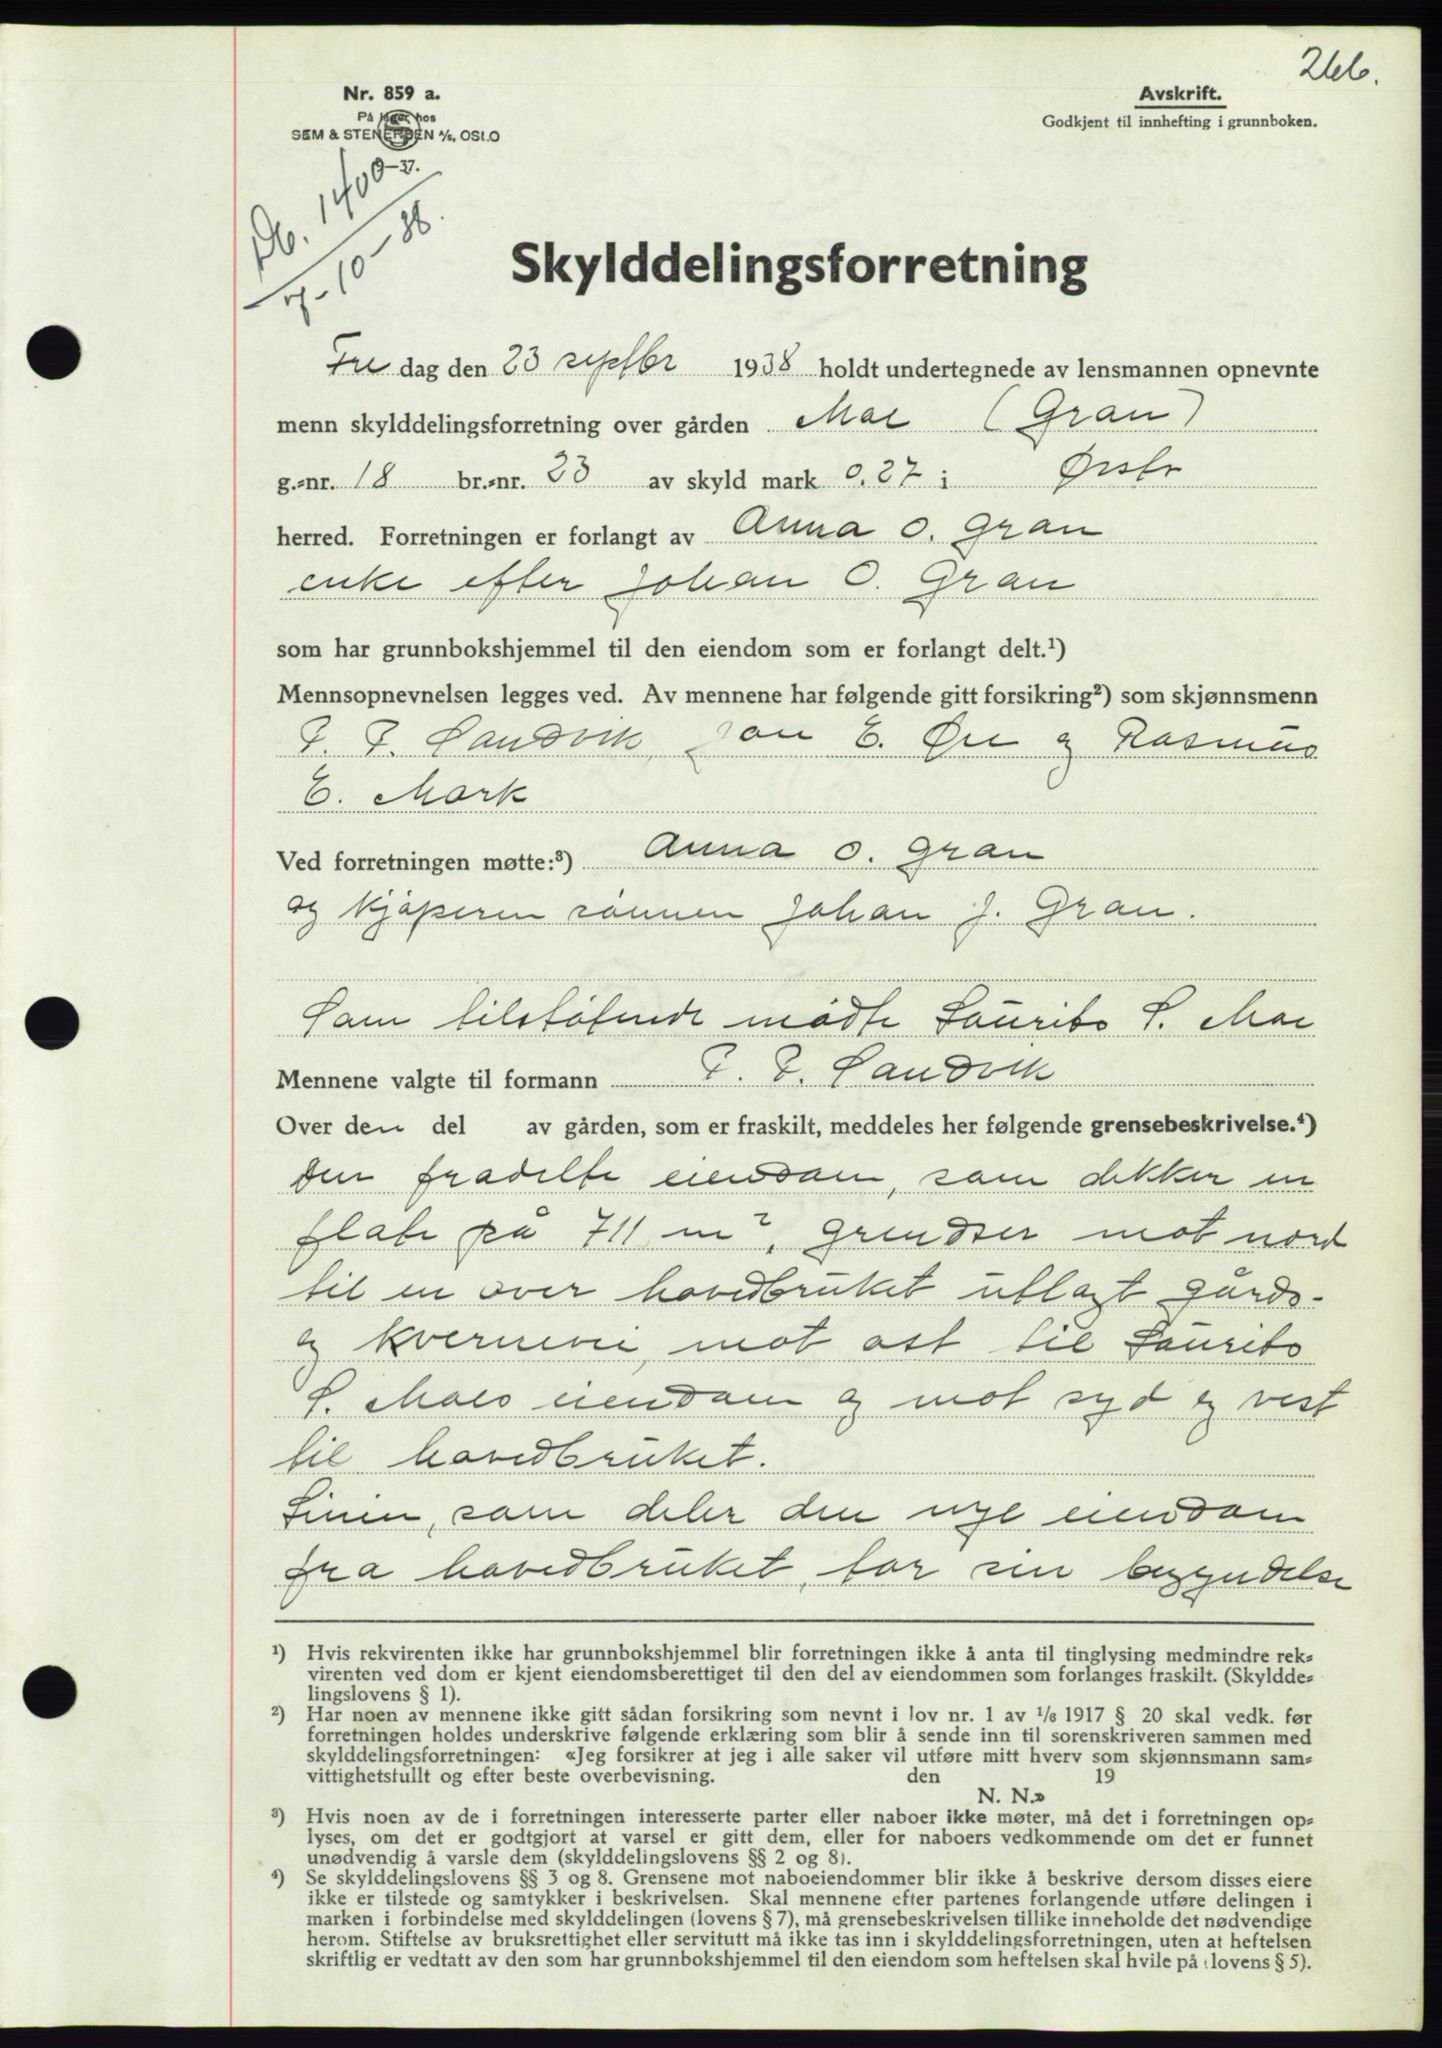 266.
Nr. 859 a.
På lager hos
SEM & STENERSEN A/S, OSLO
–37.
Avskrift.
Godkjent til innhefting i grunnboken.
Db. 1400
7-10-38.
Skylddelingsforretning
Fre dag den 23 septbr 1938 holdt undertegnede av lensmannen opnevnte
menn skylddelingsforretning over gården Moe (Gran)
g.-nr. 18 br.-nr. 23 av skyld mark 0.27 i Ørsta
herred. Forretningen er forlangt av Anna O. Gran
enke efter Johan O. Gran
som har grunnbokshjemmel til den eiendom som er forlangt delt.¹)
Mennsopnevnelsen legges ved. Av mennene har følgende gitt forsikring²) som skjønnsmenn
P. P. Sandvik, Jon E. Øie og Rasmus
E. Mork
Ved forretningen møtte:³) Anna O. Gran
og kjøperen sønnen Johan J. Gran.
Som tilstøtende mødte Laurits S. Moe
Mennene valgte til formann P. P. Sandvik
Over den del av gården, som er fraskilt, meddeles her følgende grensebeskrivelse.⁴)
Den fradelte eiendom, som dekker en
flate på 711 m², grendser mot nord
til en over hovedbruket utlagt gårds-
og kvernevei, mot ost til Laurits
S. Moes eiendom og mot syd og vest
til hovedbruket.
Linien, som deler den nye eiendom
fra hovedbruket, tar sin begyndelse
¹) Hvis rekvirenten ikke har grunnbokshjemmel blir forretningen ikke å anta til tinglysing medmindre rek-
virenten ved dom er kjent eiendomsberettiget til den del av eiendommen som forlanges fraskilt. (Skyldde-
lingslovens § 1).
²) Har noen av mennene ikke gitt sådan forsikring som nevnt i lov nr. 1 av 1/6 1917 § 20 skal vedk. før
forretningen holdes underskrive følgende erklæring som blir å sende inn til sorenskriveren sammen med
skylddelingsforretningen: «Jeg forsikrer at jeg i alle saker vil utføre mitt hverv som skjønnsmann sam-
vittighetsfullt og efter beste overbevisning. den 19
N. N.»
³) Hvis noen av de i forretningen interesserte parter eller naboer ikke møter, må det i forretningen op-
lyses, om det er godtgjort at varsel er gitt dem, eller for naboers vedkommende om det er funnet
unødvendig å varsle dem (skylddelingslovens §§ 2 og 8).
⁴) Se skylddelingslovens §§ 3 og 8. Grensene mot naboeiendommer blir ikke å beskrive dersom disses eiere
ikke er tilstede og samtykker i beskrivelsen. Skal mennene efter partenes forlangende utføre delingen i
marken i forbindelse med skylddelingen (lovens § 7), må grensebeskrivelsen tillike inneholde det nødvendige
herom. Stiftelse av bruksrettighet eller servitutt må ikke tas inn i skylddelingsforretningen, uten at heftelsen
skriftlig er vedtatt av den som har grunnbokshjemmel til den eiendom som heftelsen skal hvile på (lovens § 5).